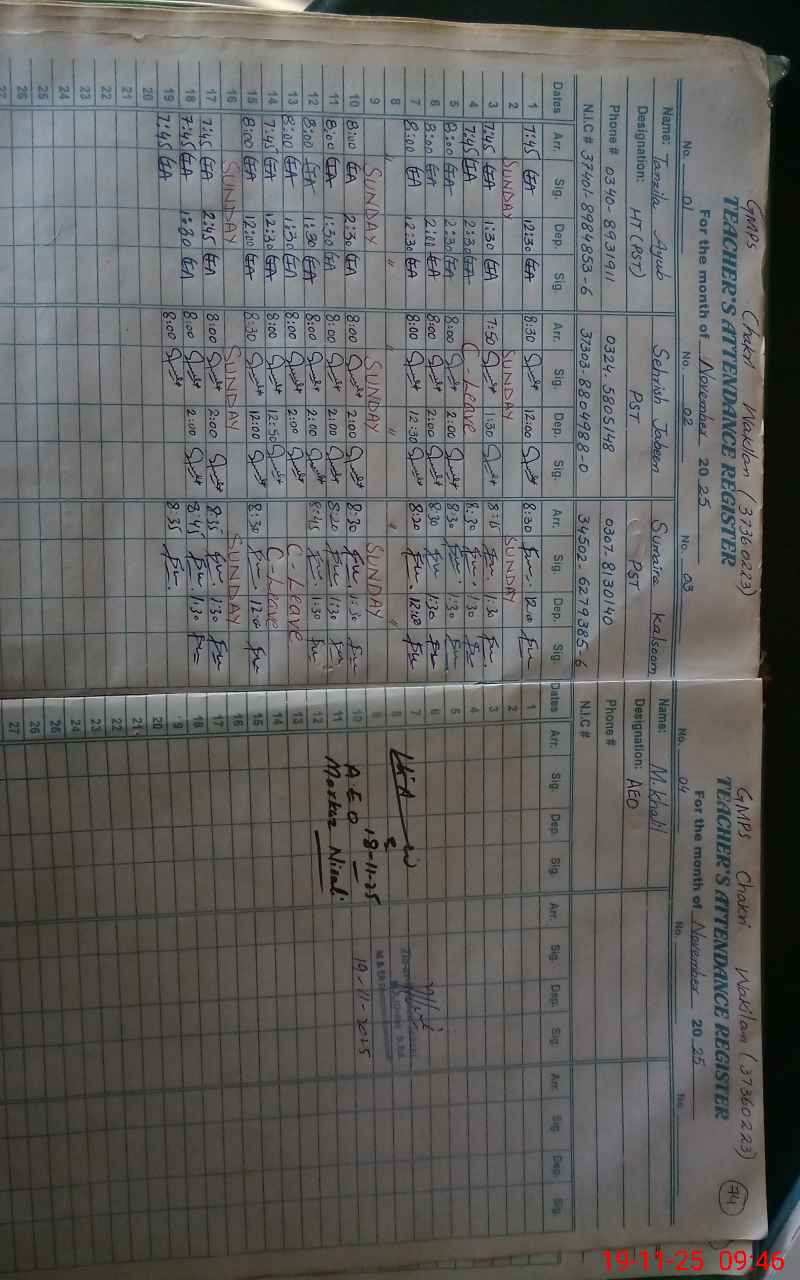 GMPS Chakri Wakilan (37360223)
TEACHER'S ATTENDANCE REGISTER
For the month of November 2025
No. 01 No. 02 No. 03
Name: Tanzila Ayub Sehrish Jabeen Sumaira Kalsoom
Designation: HT (PST) PST PST
Phone # 0340-8931911 0324-5805148 0307-8130140
N.I.C # 37401-8984853-6 37303-8804988-0 34502-6279385-6
Dates Arr. Sig. Dep. Sig. Arr. Sig. Dep. Sig. Arr. Sig. Dep. Sig.
1 7:45 12:30 8:30 12:00 8:30 12:00
2 SUNDAY SUNDAY SUNDAY
3 7:45 1:30 7:50 1:30 8:15 1:30
4 7:45 2:30 C-Leave 8:30 1:30
5 8:00 2:30 8:00 2:00 8:30 1:30
6 8:00 2:00 8:00 2:00 8:30 1:30
7 8:00 12:30 8:00 12:30 8:20 12:00
8 " " " " "
9 SUNDAY SUNDAY SUNDAY
10 8:00 2:30 8:00 2:00 8:30 1:30
11 8:00 1:30 8:00 2:00 8:20 1:30
12 8:00 1:30 8:00 2:00 8:45 1:30
13 8:00 1:30 8:00 2:00 C-Leave
14 7:45 12:30 8:00 12:50 C-Leave
15 8:00 12:00 8:30 12:00 8:30 12:00
16 SUNDAY SUNDAY SUNDAY
17 7:45 2:45 8:00 2:00 8:35 1:30
18 7:45 1:30 8:00 2:00 8:45 1:30
19 7:45 8:00 8:35
20
21
22
23
24
25
26
27
GMPS Chakri Wakilan (37360223)
74
TEACHER'S ATTENDANCE REGISTER
For the month of November 2025
No. 04 No. No.
Name: M. Khalil
Designation: AEO
Phone #
N.I.C #
Dates Arr. Sig. Dep. Sig. Arr. Sig. Dep. Sig. Arr. Sig. Dep. Sig.
1
2
3
4
5
6
7
8
9 18-11-25
10 A.E.O 19-11-2025
11 Markaz
12
13
14
15
16
17
18
19
20
21
22
23
24
25
26
27
19-11-25 09:46